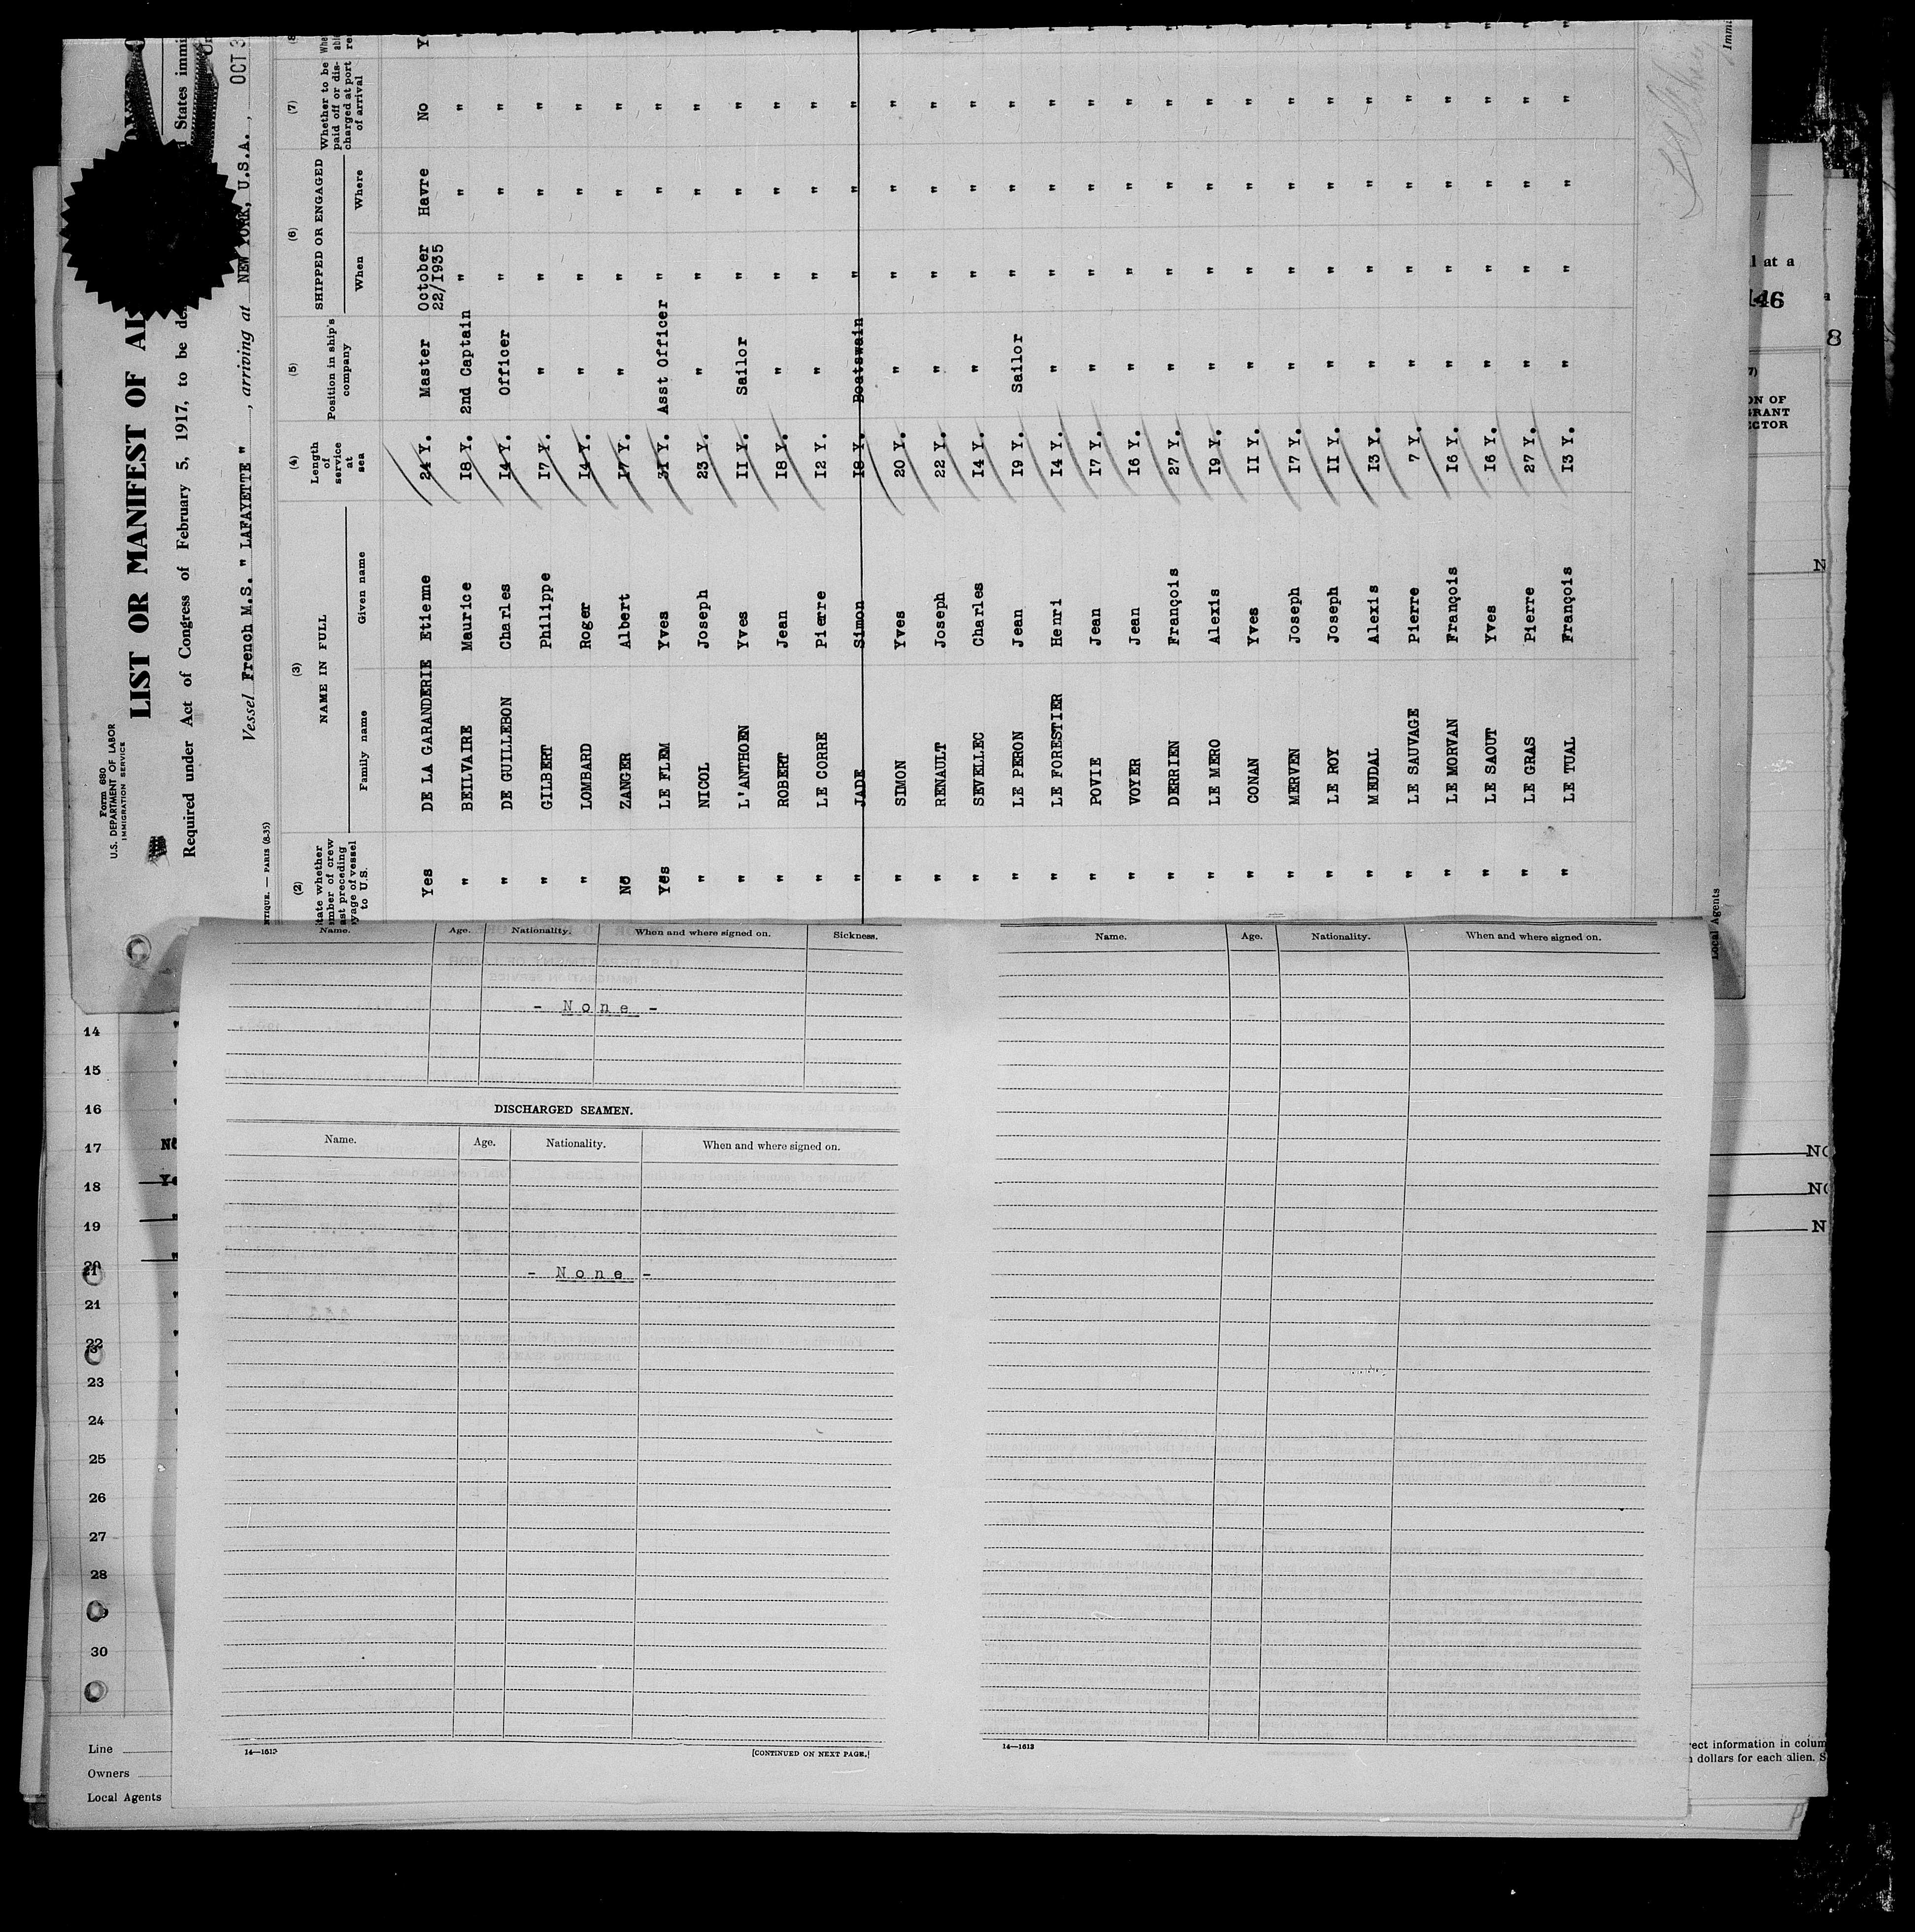 Form 680
U.S. DEPARTMENT OF LABOR
IMMIGRATION SERVICE
LIST OR MANIFEST OF
Required under Act of Congress of February 5, 1917, to be
States
Vessel French M.S. " LAFAYETTE " , arriving at NEW YORK, U.S.A. , OCT 3
PARIS (8-35)
(2) (3) (4) (5) (6) (7)
whether of crew last preceding of vessel to U.S.
NAME IN FULL
Family name Given name
Length of service at sea
Position in ship's company
SHIPPED OR ENGAGED
When Where
Whether to be paid off or discharged at port of arrival
Yes DE LA GARANDERIE Etienne 24 Y. Master October 22/I935 Havre No
" BEILVAIRE Maurice I8 Y. 2nd Captain " " "
" DE GUILLEBON Charles I4 Y. Officer " " "
" GILBERT Philippe I7 Y. " " " "
" LOMBARD Roger I4 Y. " " " "
No ZANGER Albert I7 Y. " " " "
Yes LE FLEM Yves 3I Y. Asst Officer " " "
" NICOL Joseph 23 Y. " " " "
" L'ANTHOEN Yves II Y. Sailor " " "
" ROBERT Jean I8 Y. " " " "
" LE CORRE Pierre I2 Y. " " " "
" JADE Simon I8 Y. Boatswain " " "
" SIMON Yves 20 Y. " " " "
" RENAULT Joseph 22 Y. " " " "
" SEVELLEC Charles I4 Y. " " " "
" LE PERON Jean I9 Y. Sailor " " "
" LE FORESTIER Henri I4 Y. " " " "
" POVIE Jean I7 Y. " " " "
" VOYER Jean I6 Y. " " " "
" DERRIEN François 27 Y. " " " "
" LE MERO Alexis I9 Y. " " " "
" CONAN Yves II Y. " " " "
" MERVEN Joseph I7 Y. " " " "
" LE ROY Joseph II Y. " " " "
" MEUDAL Alexis I3 Y. " " " "
" LE SAUVAGE Pierre 7 Y. " " " "
" LE MORVAN François I6 Y. " " " "
" LE SAOUT Yves I6 Y. " " " "
" LE GRAS Pierre 27 Y. " " " "
" LE TUAL François I3 Y. " " " "
Local Agents
at a
146
8
Name. Age. Nationality. When and where signed on. Sickness.
- None -
DISCHARGED SEAMEN.
Name. Age. Nationality. When and where signed on.
- None -
14—1613 [CONTINUED ON NEXT PAGE.]
Name. Age. Nationality. When and where signed on.
14—1613
14
15
16
17
18
19
20
21
22
23
24
25
26
27
28
30
Line
Owners
Local Agents
information in
dollars for each alien.